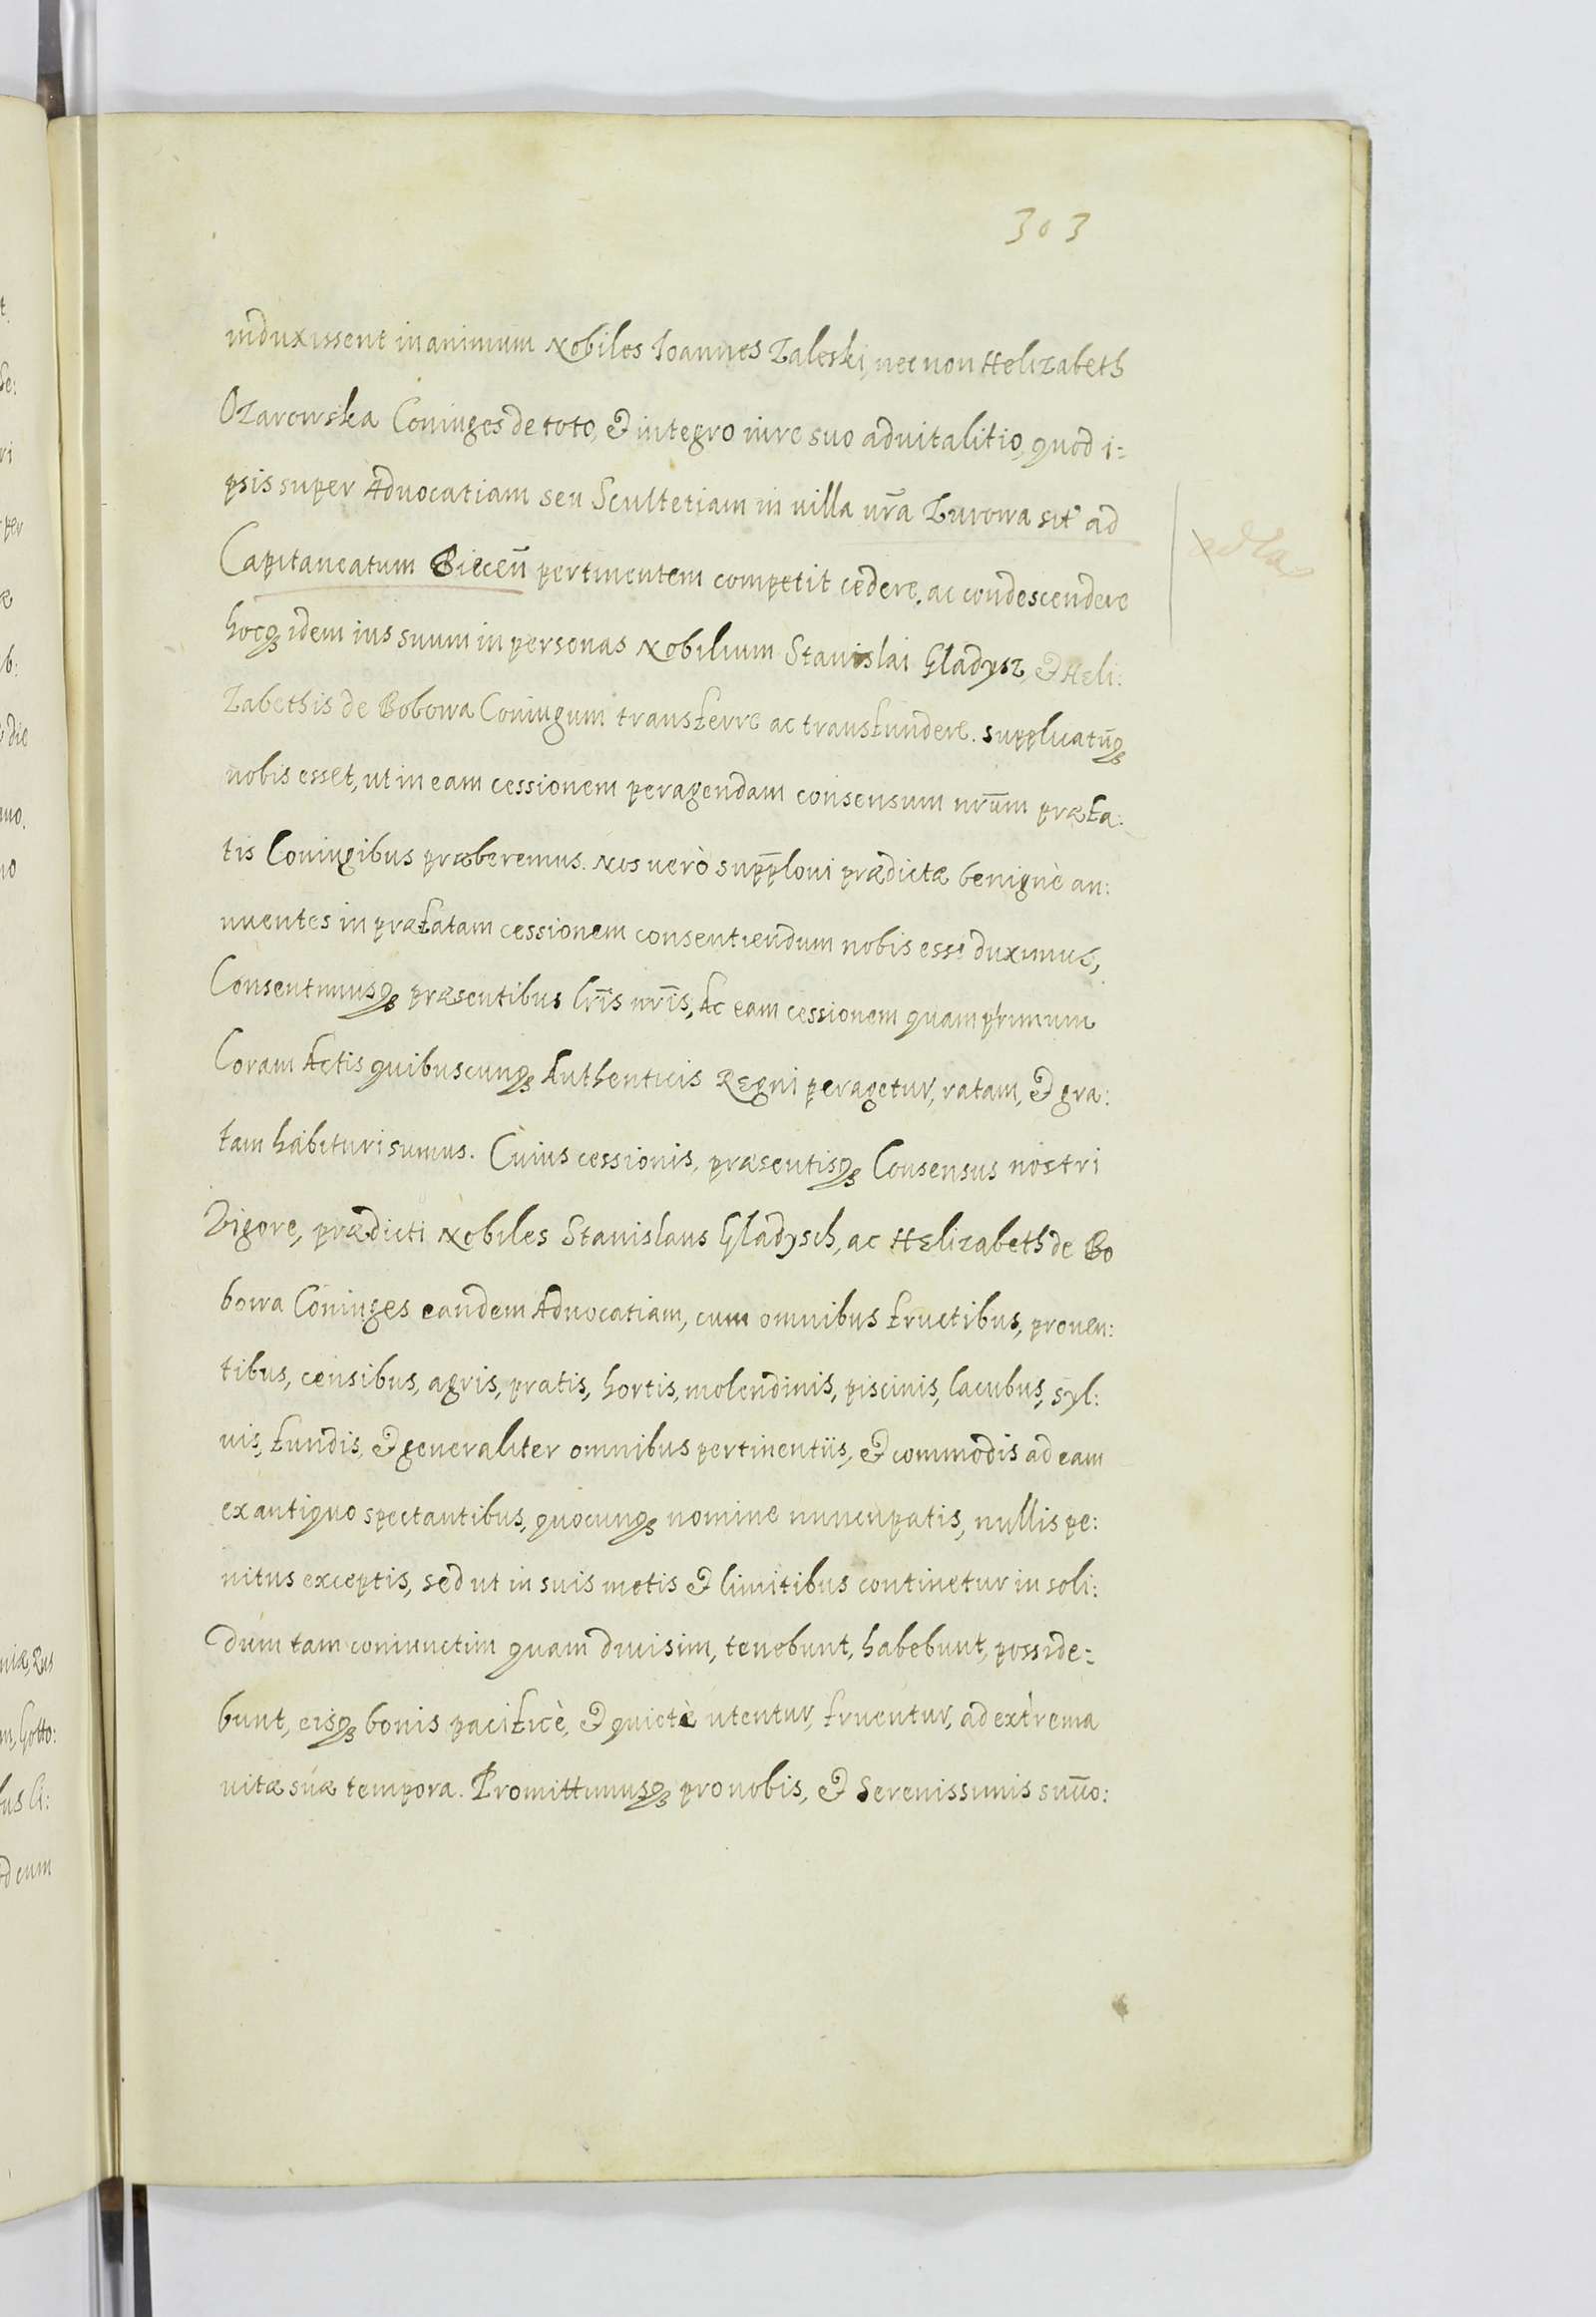 303
induxissent in animum Nobiles Ioannes Zaleski, nec non Helizabeth
Ozarowska Coniuges de toto, & integro iure suo aduitalitio, quod i=
psis super Aduocatiam seu Scultetiam in uilla nr̃a Zurowa sit' ad
Capitaneatum Biecen̄ pertinentem competit cedere, ac condescendere
hocq3 idem ius suum in personas Nobilium Stanislai Gladysz, & Heli:
zabethis de Bobowa Coniugum transferre ac transfundere. supplicatūq3
nobis esset, ut in eam cessionem peragendam consensum nr̄um præfa:
tis Coniugibus præberemus. Nos uerò supp̄loni prædictæ benignè an:
nuentes in præfatam cessionem consentiendum nobis esse duximus,
Consentimusq3 præsentibus lr̄is nr̄is, Ac eam cessionem quamprimum
Coram Actis quibuscunq3 Authenticis Regni peragetur, ratam, & gra:
tam habituri sumus. Cuius cessionis, præsentisq3 Consensus nostri
Vigore, prædicti Nobiles Stanislaus Gladysch, ac Helizabeth de Bo
bowa Coniuges eandem Aduocatiam, cum omnibus fructibus, prouen:
tibus, censibus, agris, pratis, hortis, molendinis, piscinis, lacubus, syl:
uis, fundis, & generaliter omnibus pertinentiis, & commodis ad eam
ex antiquo spectantibus, quocunq3 nomine nuncupatis, nullis pe:
nitus exceptis, sed ut in suis metis & limitibus continetur in soli:
dum tam coniunctim quam diuisim, tenebunt, habebunt, posside=
bunt, eisq3 bonis pacificè, & quietè utentur, fruentur, ad extrema
uitæ suæ tempora. Promittimusq3 pro nobis, & Serenissimis suc̄o: